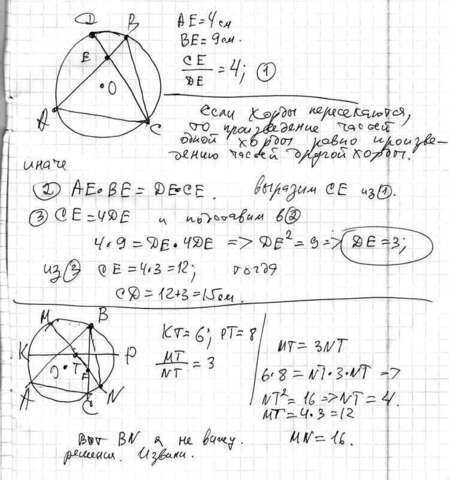 D B
E
O
A
C
AE=4см
BE=9см.
CE/DE = 4; ①
Если хорды пересекаются,
то произведение частей
одной хорды равно произве-
дению частей другой хорды.
иначе
② AE·BE=DE·CE. выразим CE из ①.
③ CE=4DE и подставим в ②
4·9=DE·4DE => DE²=9 => DE=3;
из ③ CE=4·3=12; тогда
CD=12+3=15см.
M B
K P
T
O E
A N
C
KT=6; PT=8
MT/NT = 3
MT=3NT
6·8=NT·3·NT =>
NT²=16 => NT=4.
MT=4·3=12
MN=16.
Вот BN я не вижу
решения. Извини.